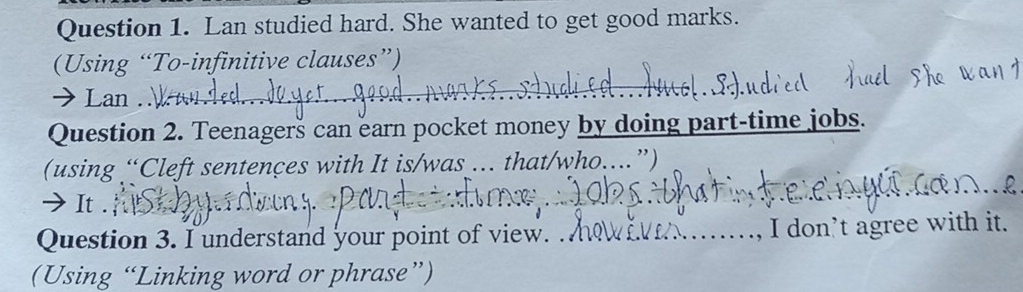 Question 1. Lan studied hard. She wanted to get good marks.
(Using “To-infinitive clauses”)
→ Lan .. Wanted to get good marks studied hard. Studied had she want
Question 2. Teenagers can earn pocket money by doing part-time jobs.
(using “Cleft sentences with It is/was ... that/who....”)
→ It . is by doing part-time jobs that can e
Question 3. I understand your point of view. ..however........, I don’t agree with it.
(Using “Linking word or phrase”)